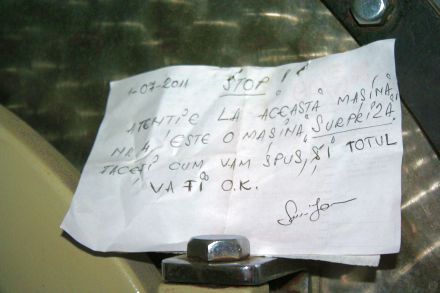 1-07-2011 STOP!
ATENTIE LA ACEASTĂ MAȘINĂ
NR 4, ESTE O MAȘINĂ SURPRIZĂ,
FACEȚI CUM VAM SPUS, ȘI TOTUL
VA FI O.K.